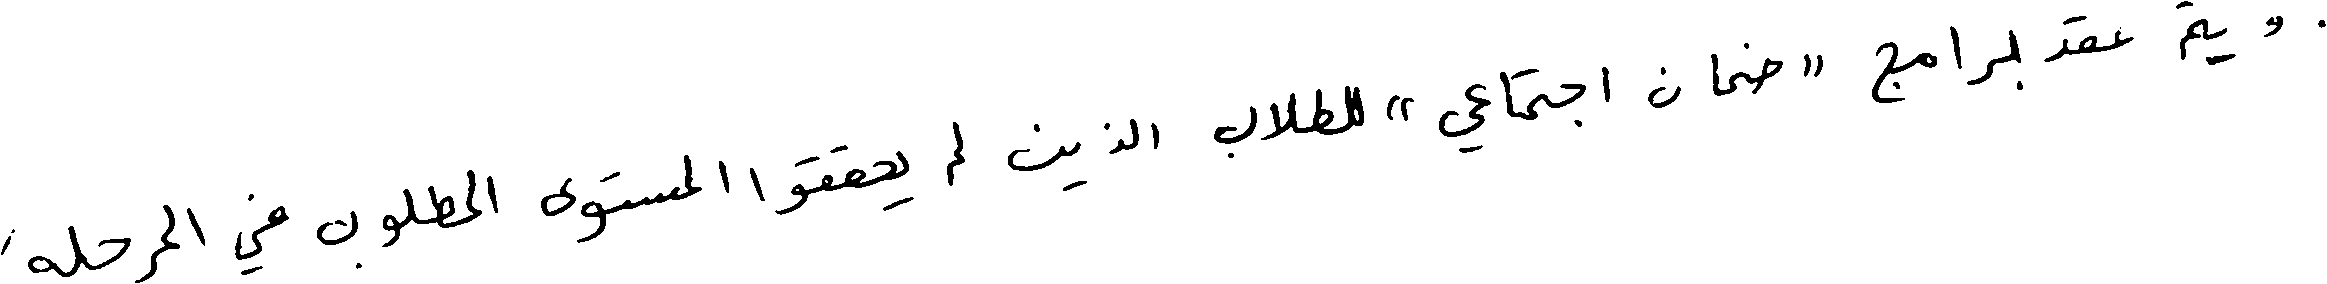 . ويتم عقد برامج "ضمان اجتماعي" للطلاب الذين لم يحققوا المستوى المطلوب في المرحله